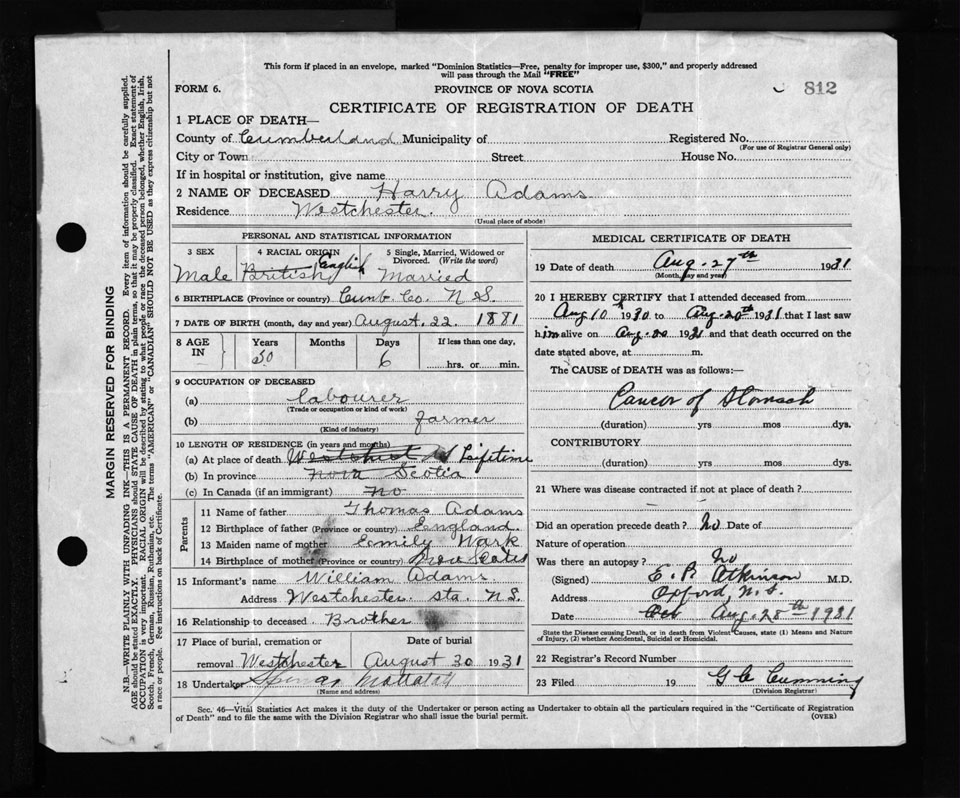 This form if placed in an envelope, marked "Dominion Statistics—Free, penalty for improper use, $300," and properly addressed
will pass through the Mail "FREE"
FORM 6. PROVINCE OF NOVA SCOTIA 812
CERTIFICATE OF REGISTRATION OF DEATH
1 PLACE OF DEATH—
County of Cumberland Municipality of Registered No.
(For use of Registrar General only)
City or Town Street House No.
If in hospital or institution, give name
2 NAME OF DECEASED Harry Adams
Residence Westchester.
(Usual place of abode)
PERSONAL AND STATISTICAL INFORMATION
3 SEX 4 RACIAL ORIGIN 5 Single, Married, Widowed or
Divorced. (Write the word)
Male British English Married
6 BIRTHPLACE (Province or country) Cumb. Co. N S.
7 DATE OF BIRTH (month, day and year) August 22. 1881
8 AGE IN Years Months Days If less than one day,
50 6 hrs. or min.
9 OCCUPATION OF DECEASED
(a) Labourer
(Trade or occupation or kind of work)
(b) farmer
(Kind of industry)
10 LENGTH OF RESIDENCE (in years and months)
(a) At place of death Lifetime
(b) In province Nova Scotia
(c) In Canada (if an immigrant) no
Parents
11 Name of father Thomas Adams
12 Birthplace of father (Province or country) England.
13 Maiden name of mother Emily Wark
14 Birthplace of mother (Province or country) Nova Scotia
15 Informant's name William Adams
Address Westchester sta. N S.
16 Relationship to deceased Brother
17 Place of burial, cremation or Date of burial
removal Westchester August 30 1931
18 Undertaker
(Name and address)
MEDICAL CERTIFICATE OF DEATH
19 Date of death Aug. 27th 1931
(Month, day and year)
20 I HEREBY CERTIFY that I attended deceased from
Aug 10th 1930 to Aug. 20th 1931 that I last saw
him alive on Aug. 20 1931 and that death occurred on the
date stated above, at m.
The CAUSE of DEATH was as follows:
Cancer of Stomach
(duration) yrs mos. dys.
CONTRIBUTORY.
(duration) yrs mos dys.
21 Where was disease contracted if not at place of death?
Did an operation precede death? No Date of
Nature of operation
Was there an autopsy? No
(Signed) E. P. Atkinson M.D.
Address Oxford, N.S.
Date Aug. 28th 1931
State the Disease causing Death, or in death from Violent Causes, state (1) Means and Nature
of Injury, (2) whether Accidental, Suicidal or Homicidal.
22 Registrar's Record Number
23 Filed 19 G C Cumming
(Division Registrar)
Sec. 46—Vital Statistics Act makes it the duty of the Undertaker or person acting as Undertaker to obtain all the particulars required in the "Certificate of Registration
of Death" and to file the same with the Division Registrar who shall issue the burial permit. (OVER)
MARGIN RESERVED FOR BINDING
N.B.—WRITE PLAINLY WITH UNFADING INK—THIS IS A PERMANENT RECORD. Every item of information should be carefully supplied.
AGE should be stated EXACTLY. PHYSICIANS should STATE CAUSE OF DEATH in plain terms, so that it may be properly classified. Exact statement of
OCCUPATION is very important. RACIAL ORIGIN will be described by stating to what people or race the deceased person belonged, whether English, Irish,
Scotch, French, German, Russian, Ruthenian, etc. The terms "AMERICAN" or "CANADIAN" SHOULD NOT BE USED as they express citizenship but not
a race or people. See instructions on back of Certificate.